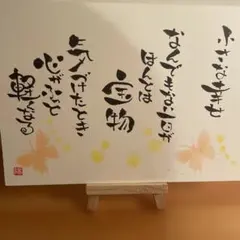 小さな幸せ
なんでもない日が
ほんとは
宝物
気づけたとき
心がふっと
軽くなる